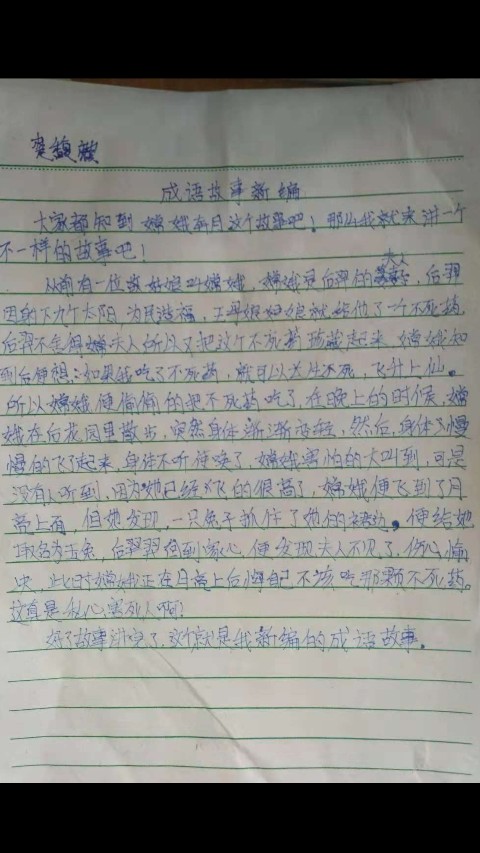 成语故事新编
大家都知到嫦娥奔月这个故事吧！那么我就来讲一个
不一样的故事吧！
从前有一位姑娘叫嫦娥，嫦娥是后羿的夫人，后羿
因射下九个太阳，为民造福，王母娘娘就给他了一个不死药，
后羿不舍得夫人所以又把这个不死药珍藏起来，嫦娥知
到后便想：如果我吃了不死药，就可以长生不死，飞升上仙。
所以嫦娥便偷偷的把不死药吃了，在晚上的时候，嫦
娥在后花园里散步，突然身体渐渐变轻，然后，身体又慢
慢的飞了起来，身体不听使唤了，嫦娥害怕的大叫到，可是
没有人听到，因为她已经飞的很高了，嫦娥便飞到了月
亮上面，但她发现，一只兔子抓住了她的，便给她
取名为玉兔，后羿回到家，便发现夫人不见了，伤心
，此时嫦娥正在月亮上后悔自己不该吃那颗不死药。
这真是私心害死人啊！
好了故事讲完了，这个就是我新编的成语故事。